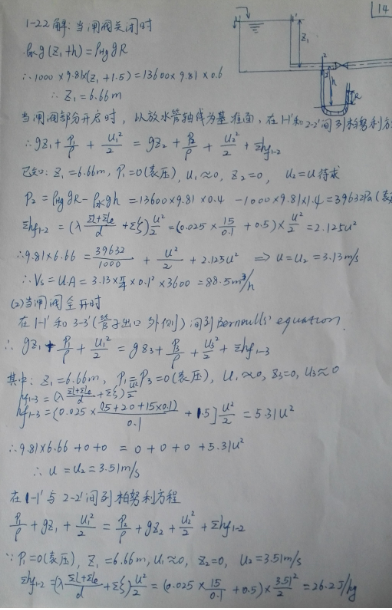 14
1-22 解: 当闸阀关闭时
ρ_{H₂O}g(z₁+h)=ρ_{Hg}gR
∴1000×9.81×(z₁+1.5)=13600×9.81×0.6
∴ z₁=6.66m
当闸阀部分开启时, 以放水管轴线为基准面, 在1-1'和2-2'间列柏努利方
∴ gz₁+P₁/ρ+u₁²/2 = gz₂+P₂/ρ+u₂²/2+Σhf₁₋₂
已知: z₁=6.66m, P₁=0(表压), u₁≈0, z₂=0, u₂=u待求
P₂=ρ_{Hg}gR-ρ_{H₂O}gh=13600×9.81×0.4-1000×9.81×1.4=39632Pa(表
Σhf₁₋₂=(λ(Σl+Σle)/d+Σζ)u²/2=(0.025×15/0.1+0.5)×u²/2=2.125u²
∴9.81×6.66=39632/1000+u²/2+2.125u² ⇒ u=u₂=3.13m/s
∴Vₛ=uA=3.13×π/4×0.1²×3600=88.5m³/h
(2)当闸阀全开时
在1-1'和3-3'(管子出口外侧)间列Bernoulli's equation,
∴ gz₁+P₁/ρ+u₁²/2=gz₃+P₃/ρ+u₃²/2+Σhf₁₋₃
其中: z₁=6.66m, P₁=P₃=0(表压), u₁≈0, z₃=0, u₃≈0
hf₁₋₃=(λ(Σl+Σle)/d+Σζ)u²/2
=[0.025×(35+20+15×0.1)/0.1+1.5]u²/2=5.31u²
∴9.81×6.66+0+0=0+0+0+5.31u²
∴ u=u₂=3.51m/s
在1-1'与2-2'间列柏努利方程
P₁/ρ+gz₁+u₁²/2=P₂/ρ+gz₂+u₂²/2+Σhf₁₋₂
∵P₁=0(表压), z₁=6.66m, u₁≈0, z₂=0, u₂=3.51m/s
Σhf₁₋₂=(λ(Σl+Σle)/d+Σζ)u²/2=(0.025×15/0.1+0.5)×3.51²/2=26.2J/kg